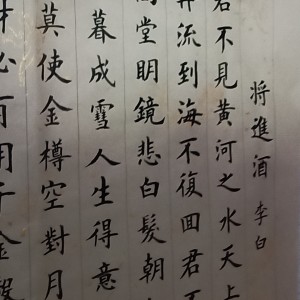 將進酒 李白
君不見黃河之水天上
奔流到海不復回君不
高堂明鏡悲白髮朝
暮成雪人生得意
莫使金樽空對月
材必有用千金